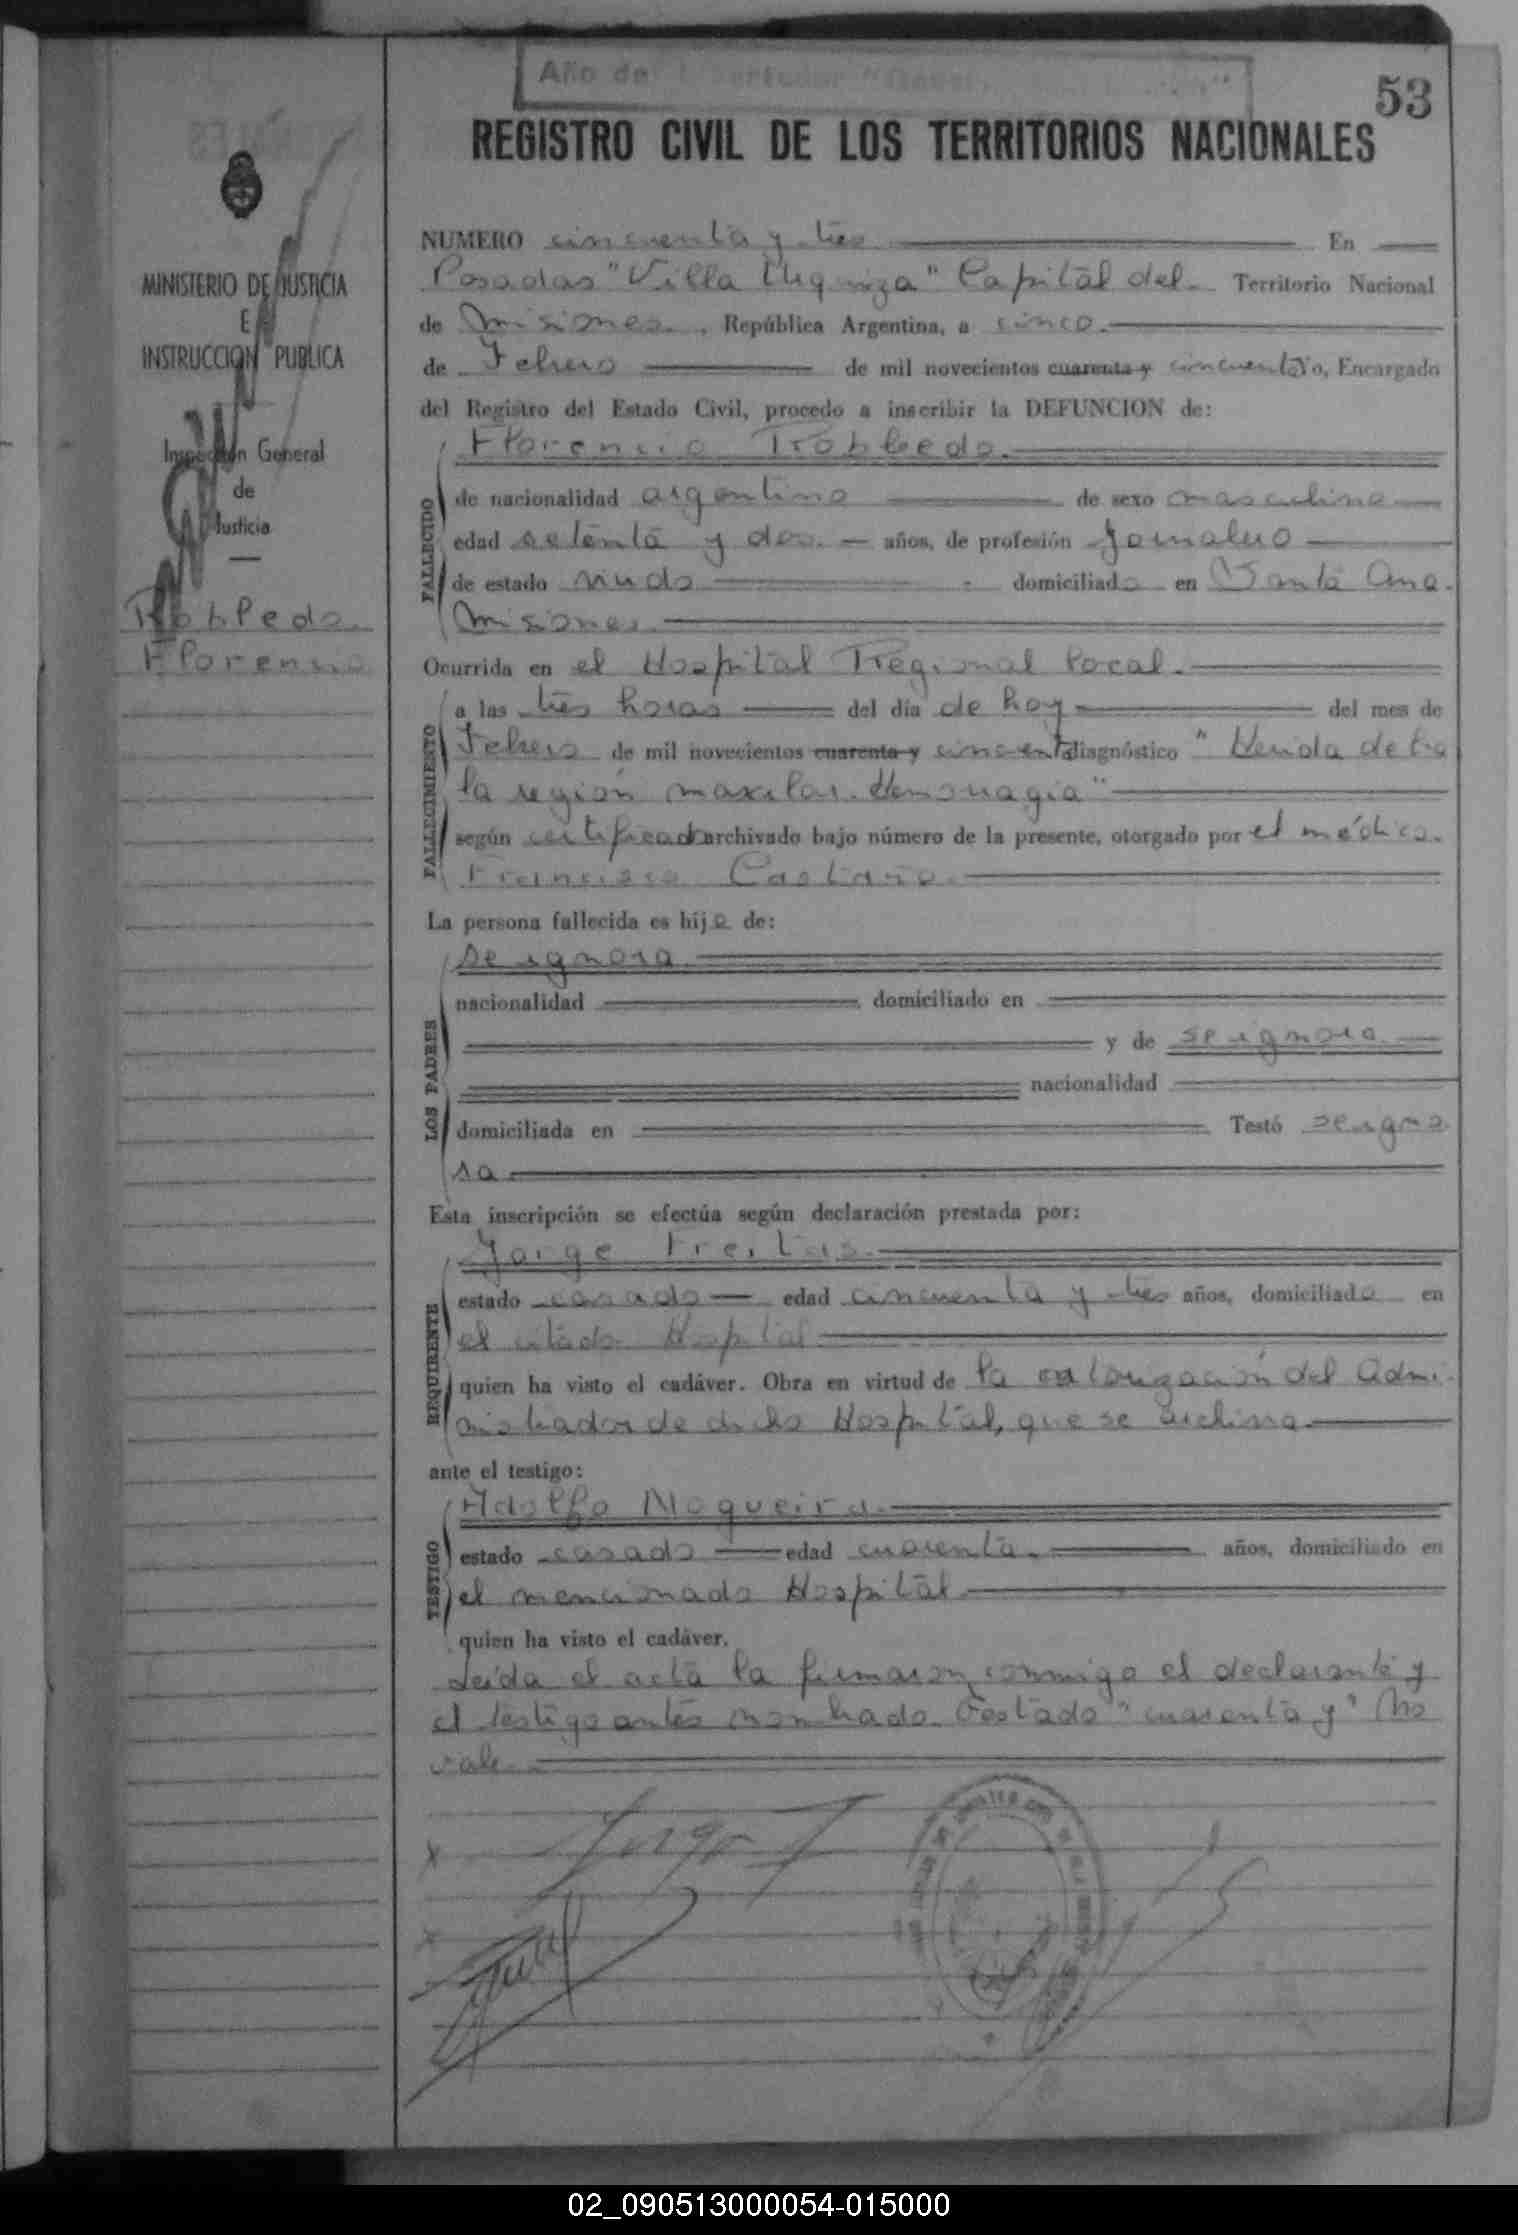 Año del Libertador "General
53
REGISTRO CIVIL DE LOS TERRITORIOS NACIONALES
MINISTERIO DE JUSTICIA
E
INSTRUCCION PUBLICA
Inspección General
de
Justicia
Robledo
Florencio
NUMERO cincuenta y tres En
Posadas "Villa Urquiza" Capital del Territorio Nacional
de Misiones, República Argentina, a cinco.
de Febrero de mil novecientos cuarenta y cincuenta Yo, Encargado
del Registro del Estado Civil, procedo a inscribir la DEFUNCION de:
FALLECIDO
Florencio Robledo.
de nacionalidad argentino de sexo masculino
edad setenta y dos. años, de profesión Jornalero
de estado viudo domiciliado en Santa Ana.
Misiones.
Ocurrida en el Hospital Regional local.
FALLECIMIENTO
a las tres horas del día de hoy del mes de
Febrero de mil novecientos cuarenta y cincuenta diagnóstico "Herida de
la región maxilar. Hemorragia"
según certificado archivado bajo número de la presente, otorgado por el médico.
Francisco Castaño.
La persona fallecida es hijo de:
LOS PADRES
se ignora.
nacionalidad domiciliado en
y de se ignora.
nacionalidad
domiciliada en Testó se igno
ra
Esta inscripción se efectúa según declaración prestada por:
REQUIRENTE
Jorge Freitas.
estado casado edad cincuenta y tres años, domiciliado en
el citado Hospital
quien ha visto el cadáver. Obra en virtud de la autorización del Admi-
nistrador de dicho Hospital, que se archiva.
ante el testigo:
TESTIGO
Adolfo Nogueira.
estado casado edad cuarenta. años, domiciliado en
el mencionado Hospital
quien ha visto el cadáver.
Leída el acta la firmaron conmigo el declarante y
el testigo antes nombrado. Testado "cuarenta y" No
vale.
02_090513000054-015000